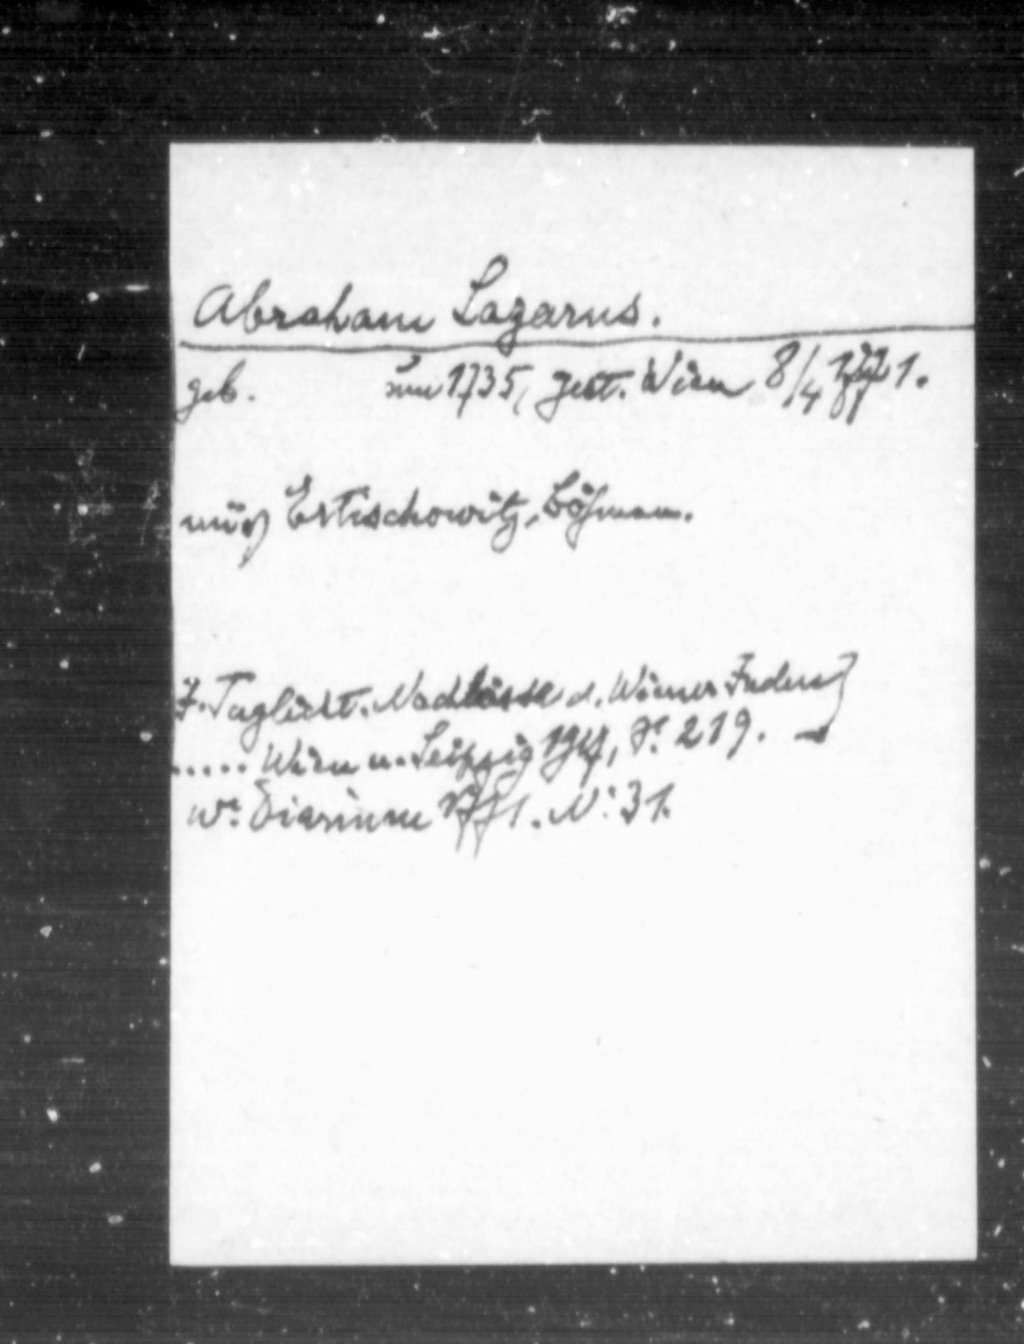 Abraham Lazarus.
geb. um 1735, gest. Wien 8/4 1771.
aus Ertischowitz, Böhmen.
J. Taglicht. Nachlässe d. Wiener Juden
..... Wien u. Leipzig 1917, S. 219.
Wr. Diarium 1771. No. 31.